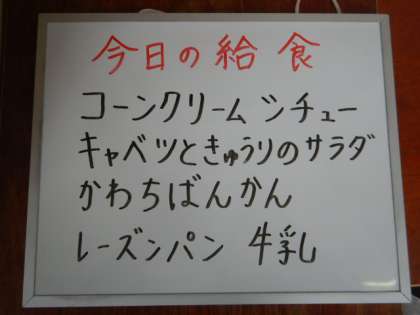 今日の給食
コーンクリームシチュー
キャベツときゅうりのサラダ
かわちばんかん
レーズンパン 牛乳